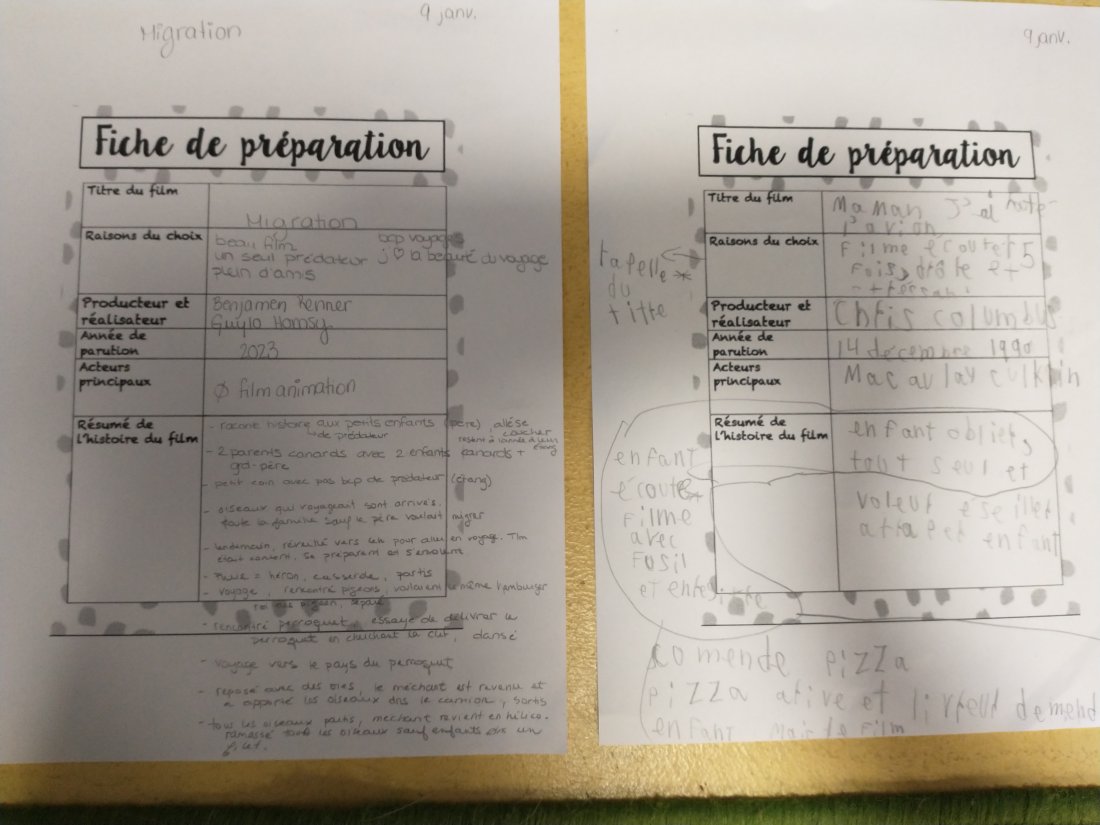 Migration
9 janv.
Fiche de préparation
Titre du film
Migration
Raisons du choix
beau film
bcp voyages
un seul prédateur j'♡ la beauté du voyage
plein d'amis
Producteur et
réalisateur
Benjamen Renner
Guylo Homsy
Année de
parution
2023
Acteurs
principaux
Ø film animation
Résumé de
l'histoire du film
- racont histoire aux petits enfants (père), allé se coucher
de prédateur
- 2 parents canards avec 2 enfants canards +
grd-père
- petit coin avec pas bcp de prédateur (étang)
- oiseaux qui voyageait sont arrivés.
toute la famille sauf le père voulait migrer
- lendemain, réveillé vers pour aller en voyage. Tlm
était content, se préparent et s'envolent
- Pluie = héron, casserole, partis
- voyage, rencontré pigeons, voulaient le même hamburger
- rencontré perroquet, essaye de délivrer le
perroquet en cherchant la clef, dansé
- voyage vers le pays du perroquet
- reposé avec des oies, le méchant est revenu et
a apporté les oiseaux dns le camion, sortis
- tous les oiseaux partis, méchant revient en hélico.
ramassé tous les oiseaux sauf enfants dns un
filet.
9 janv.
Fiche de préparation
Titre du film
Maman J'ai raté
l'avion
Raisons du choix
Filme écouter 5
fois, drôle et
rapelle
du
titre
Producteur et
réalisateur
Chris columbus
Année de
parution
14 décembre 1990
Acteurs
principaux
Macaulay culkin
Résumé de
l'histoire du film
enfant obliet,
tout seul et
voleur éseillet
attaper enfant
enfant
écoute
Filme
avec
Fusil
comende pizza
pizza arive et livreur demend
enfant mais le film